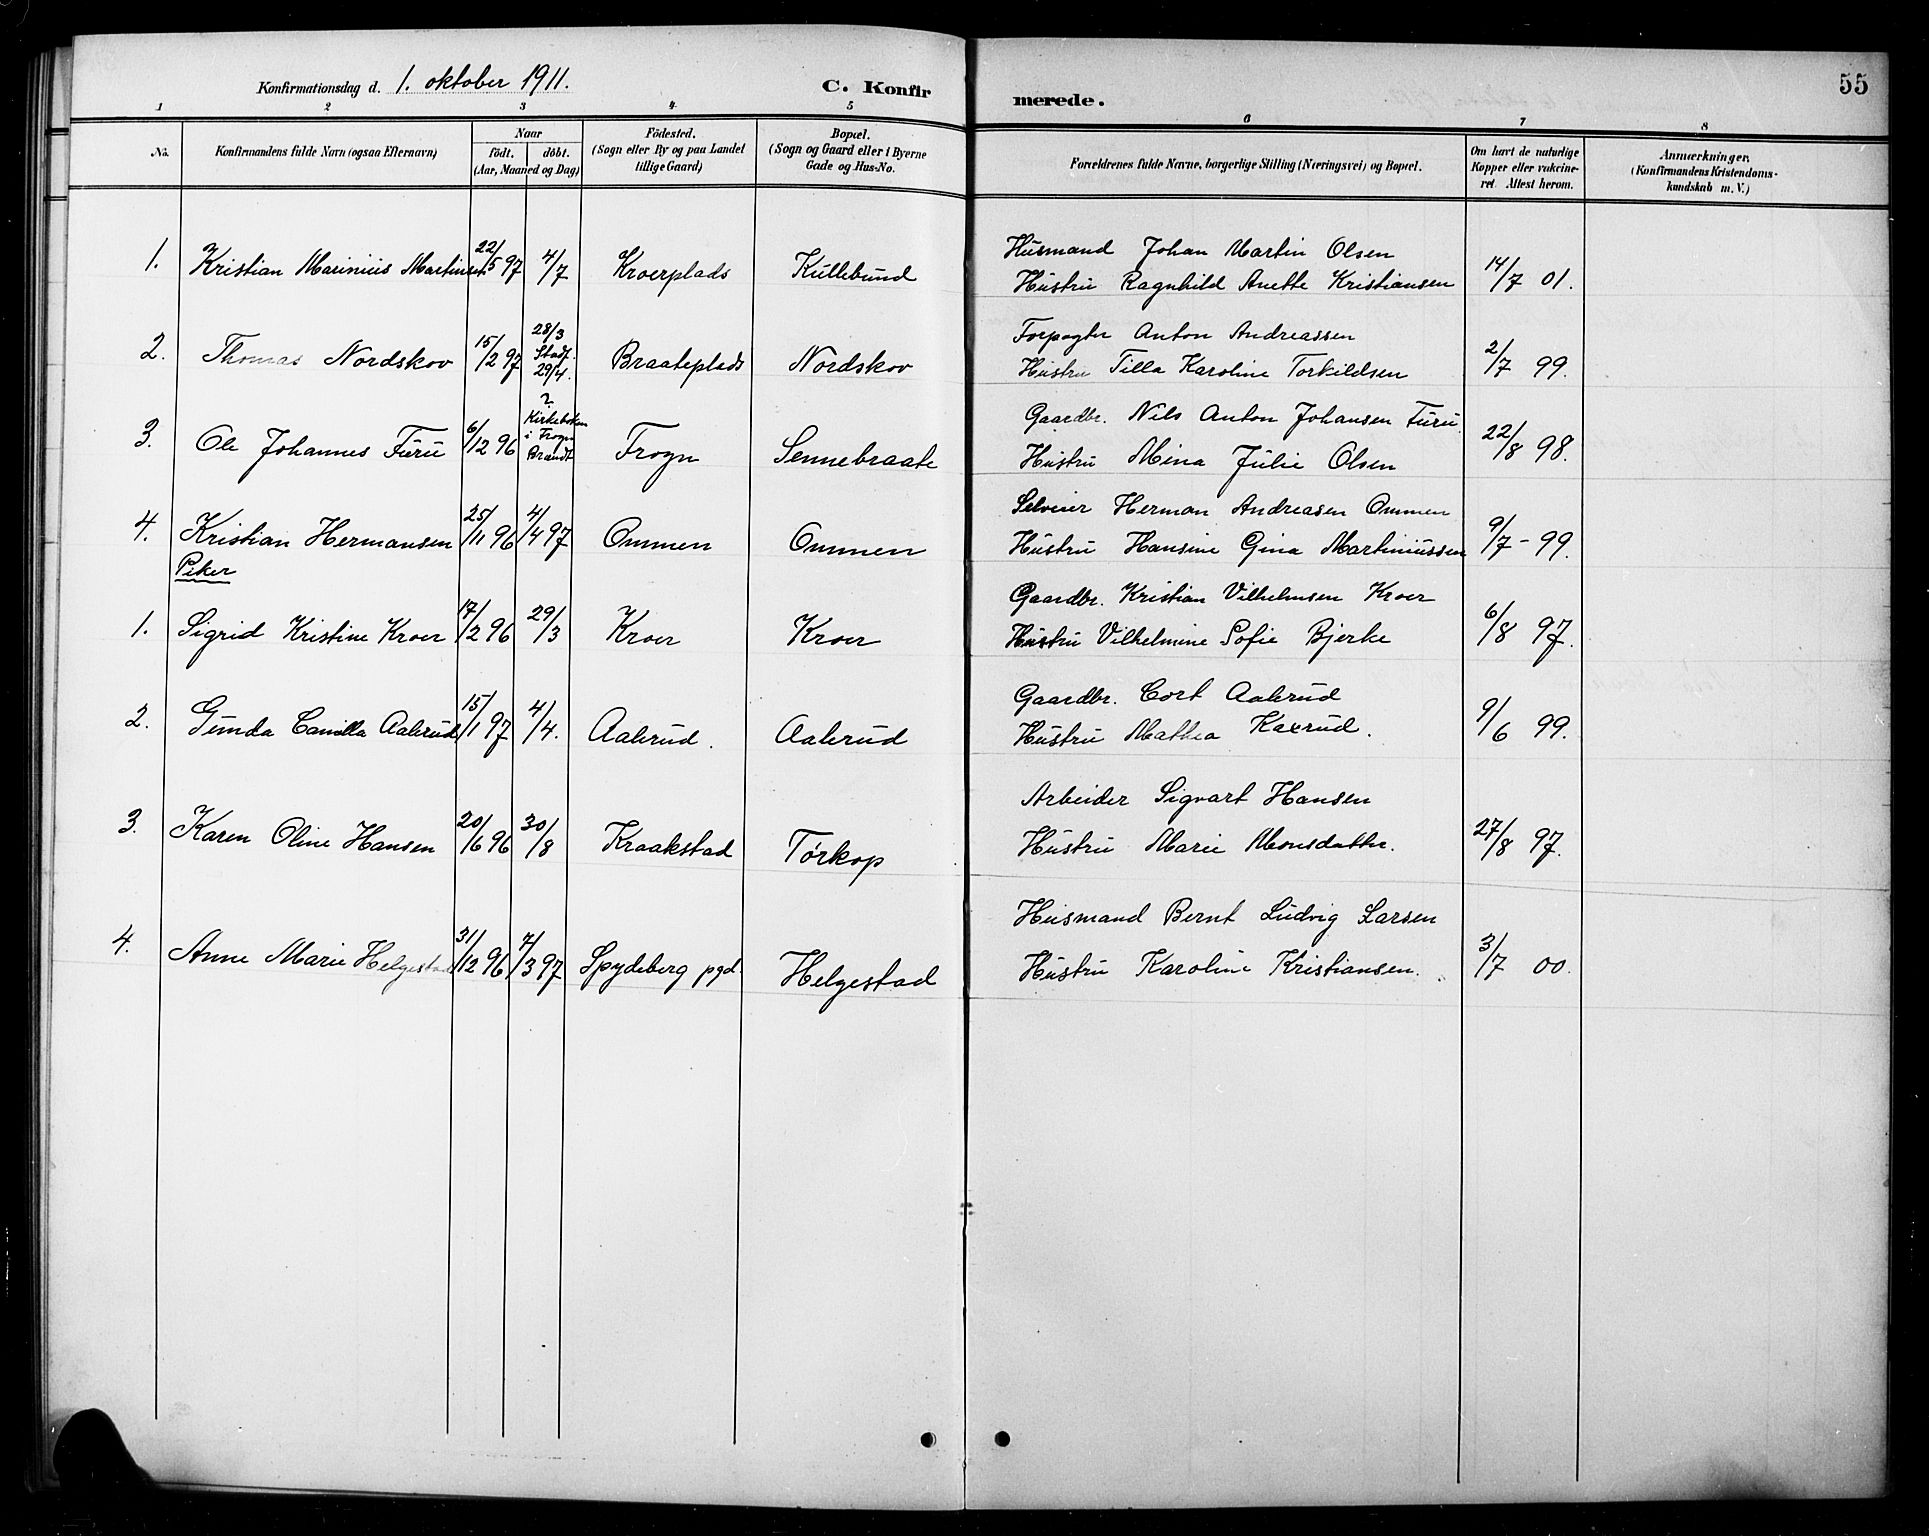 Konfirmationsdag d. 1. oktober 1911.
C. Konfirmerede.
55
1 2 3 4 5 6 7 8
No.
Konfirmandens fulde Navn (ogsaa Efternavn)
Naar
født. døbt.
(Aar, Maaned og Dag)
Födested.
(Sogn eller By og paa Landet
tillige Gaard)
Bopæl.
(Sogn og Gaard eller i Byerne
Gade og Hus-No.
Forældrenes fulde Navne, borgerlige Stilling (Næringsvei) og Bopæl.
Om havt de naturlige
Kopper eller vakcine-
ret. Attest herom.
Anmærkninger.
(Konfirmandens Kristendoms-
kundskab m. V.)
1. Kristian Marinius Martinsen 22/5 97 4/7 Kroerplads Kullebund
Husmand Johan Martin Olsen
Hustru Ragnhild Anette Kristiansen 14/7 01.
2. Thomas Nordskov 15/2 97 28/3 Stadf. 29/4. Braateplads Nordskov
Forpagter Anton Andreassen
Hustru Tilla Karoline Torkildsen 2/7 99.
3. Ole Johannes Furu 6/12 96 ? Kirkeboken i Frogn Brandt Frogn Sennebraate
Gaardbr. Nils Anton Johansen Furu.
Hustru Mina Julie Olsen 22/8 98.
4. Kristian Hermansen 25/11 96 4/4 97 Ommen Ommen
Selveier Herman Andreasen Ommen
Hustru Hansine Gina Martiniussen 9/7 - 99.
Piker
1. Sigrid Kristine Kroer 17/2 96 29/3 Kroer Kroer
Gaardbr. Kristian Vilhelmsen Kroer
Hustru Vilhelmine Sofie Bjerke 6/8 97.
2. Gunda Camilla Aakrud 15/1 97 4/4. Aakrud. Aakrud
Gaardbr. Cort Aakrud
Hustru Mathea Kaxrud. 9/6 99.
3. Karen Oline Hansen 20/6 96 30/8 Kraakstad Tørkop
Arbeider Sigvart Hansen
Hustru Marie Monsdatter. 27/8 97.
4. Anne Marie Helgestad 31/12 96 7/3 97 Spydeberg pgd. Helgestad
Husmand Bernt Ludvig Larsen
Hustru Karoline Kristiansen. 3/7 00.